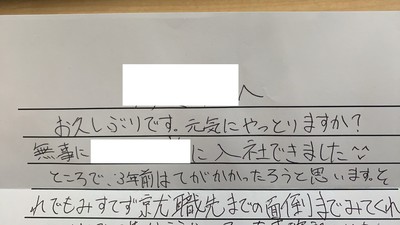 へ
お久しぶりです。元気にやっとりますか?
無事に に入社できました
ところで、3年前はてがかかったろうと思います。そ
れでもみすてず京尤職先までの面倒までみてくれ